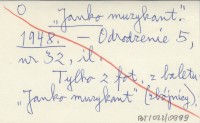 O
„Janko muzykant".
1948. – Odrodzenie 5,
nr 32, il.
Tylko 2 fot. z baletu
„Janko muzykant" (zbójnicy).